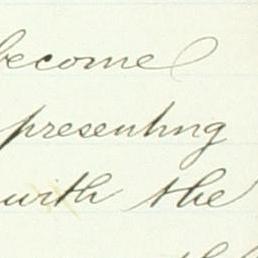 become
presenting
with the